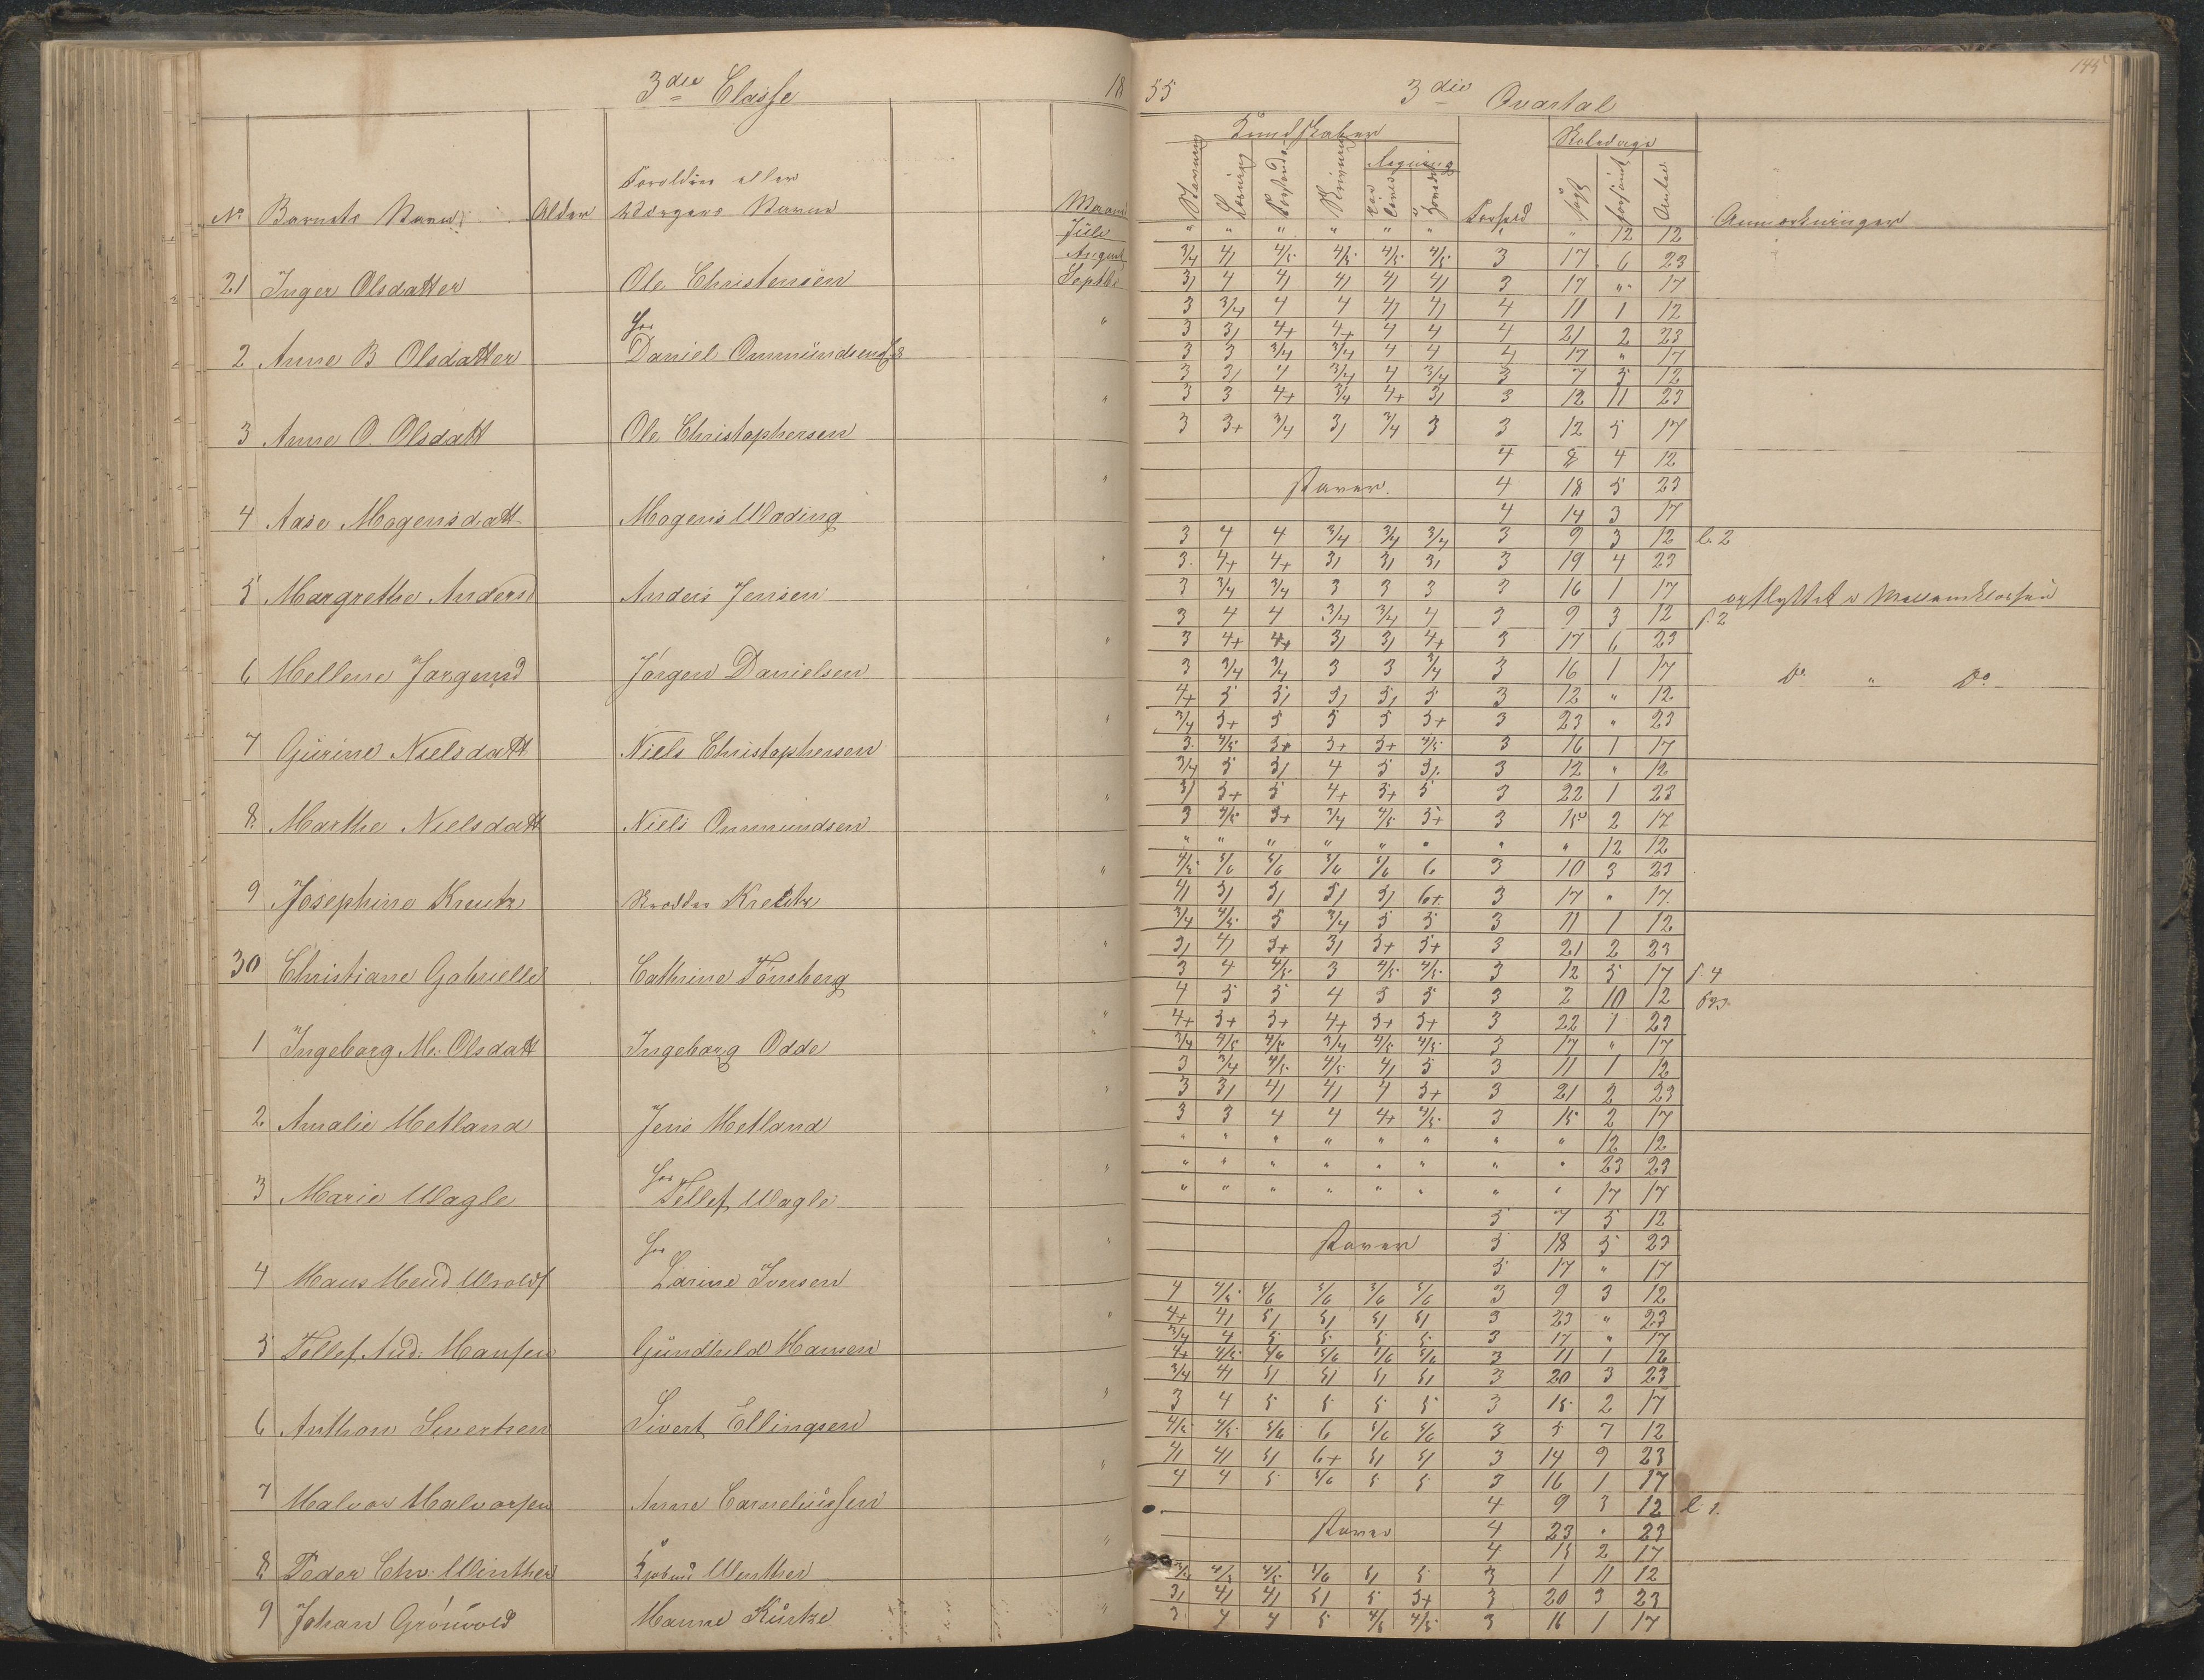 3die Classe
18 55
3die Quartal
145
Kundskaber
Skoledage
Regning
No Barnets Navn Alder Forældre eller Værgers Navne Maaned
Stavning Læsning Forstand Skrivning Forhold søgt forsømt Antal Anmærkninger
Juli " " " " " " " " 12 12
August 3/4 4/ 4/5 4/5 4/5 4/5 3 17 6 23
21 Inger Olsdatter Ole Christensen Septbr 3/ 4 4/ 4/ 4/ 4/ 3 17 " 17
3 3/4 4 4 4/ 4/ 4 11 1 12
hos " 3 3/ 4+ 4+ 4 4 4 21 2 23
2 Anne B Olsdatter Daniel Ommundsen 3 3 3/4 3/4 4 4 4 17 " 17
3 3/ 4 3/4 4 3/4 3 7 5 12
" 3 3 4+ 3/4 4+ 3/ 3 12 11 23
3 Anne O. Olsdatt Ole Christophersen 3 3+ 3/4 3/ 3/4 3 3 12 5 17
4 8 4 12
" staver. 4 18 5 23
4 Aase Mogensdatt Mogens Wading 4 14 3 17
3 4 4 3/4 3/4 3/4 3 9 3 12
" 3 4+ 4+ 3/ 3/ 3/ 3 19 4 23
5 Margrethe Andersd Anders Jensen 3 3/4 3/4 3 3 3 3 16 1 17 opflyttet i
3 4 4 3/4 3/4 4 3 9 3 12
" 3 4+ 4+ 3/ 3/ 4+ 3 17 6 23
6 Hellene Jørgensd Jørgen Danielsen 3 3/4 3/4 3 3 3/4 3 16 1 17 Do " Do
4+ 5 5/ 5/ 5/ 5 3 12 " 12
" 3/4 5+ 5 5 5 5+ 3 23 " 23
7 Gurine Nielsdatt Niels Christophersen 3 4/5 5+ 5+ 5+ 4/5 3 16 1 17
3/4 5 5/ 4 5 5/ 3 12 " 12
" 3/ 5+ 5 4+ 5+ 5 3 22 1 23
8 Marthe Nielsdatt Niels Ommundsen 3 4/5 5+ 3/4 4/5 5+ 3 15 2 17
" " " " " " " " 12 12
" 4/5 5/6 5/6 5/6 5/6 6 3 10 3 23
9 Josephine Kreutz Kreutz 4/ 5/ 5/ 5/ 5/ 6+ 3 17 " 17
3/4 4/5 5 3/4 5 5 3 11 1 12
" 3/ 4/ 5+ 3/ 5+ 5+ 3 21 2 23
30 Christiane Gabrielle Cathrine Tønsberg 3 4 4/5 3 4/5 4/5 3 12 5 17
4 5 5 4 5 5 3 2 10 12
" 4+ 5+ 5+ 4+ 5+ 5+ 3 22 1 23
1 Ingeborg M. Olsdatt Ingeborg Odde 3/4 4/5 4/5 3/4 4/5 4/5 3 17 " 17
3 3/4 4/5 4/5 4/ 5 3 11 1 12
" 3 3/ 4/ 4/ 4 5+ 3 21 2 23
2 Amalie Hetland Jens Hetland 3 3 4 4 4+ 4/5 3 15 2 17
" " " " " " " " 12 12
hos " " " " " " " " " 23 23
3 Marie Wagle Tellef Wagle " " " " " " " " 17 17
5 7 5 12
hos " staver 5 18 5 23
4 Hans Larine Iversen 5 17 " 17
4 4/5 5/6 5/6 5/6 5/6 3 9 3 12
" 4+ 4/ 5/ 5/ 5/ 5/ 3 23 " 23
5 Tellef And. Hansen Gundhild Hansen 3/4 4 5 5 5 5 3 17 " 17
4+ 4/5 5/6 5/6 5/6 5/6 3 11 1 12
" 3/4 4/ 5/ 5/ 5/ 5/ 3 20 3 23
6 Anthon Sivertsen Sivert Ellingsen 3 4 5 5 5 5 3 15 2 17
4/5 4/5 5/6 6 5/6 5/6 3 5 7 12
" 4/ 4/ 5/ 6+ 5/ 5/ 3 14 9 23
7 Halvor Halvorsen Anne Corneliussen 4 4 5 5/6 5 5 3 16 1 17
4 9 3 12
" staver 4 23 " 23
8 Peder Chr. Winther Winther 4 15 2 17
4/5 4/5 5/6 5/ 5 3 1 11 12
" 3/ 4/ 4/ 5/ 5 5+ 3 20 3 23
9 Johan Grönvold Hanne 3 4 4 5 4/5 4/5 3 16 1 17